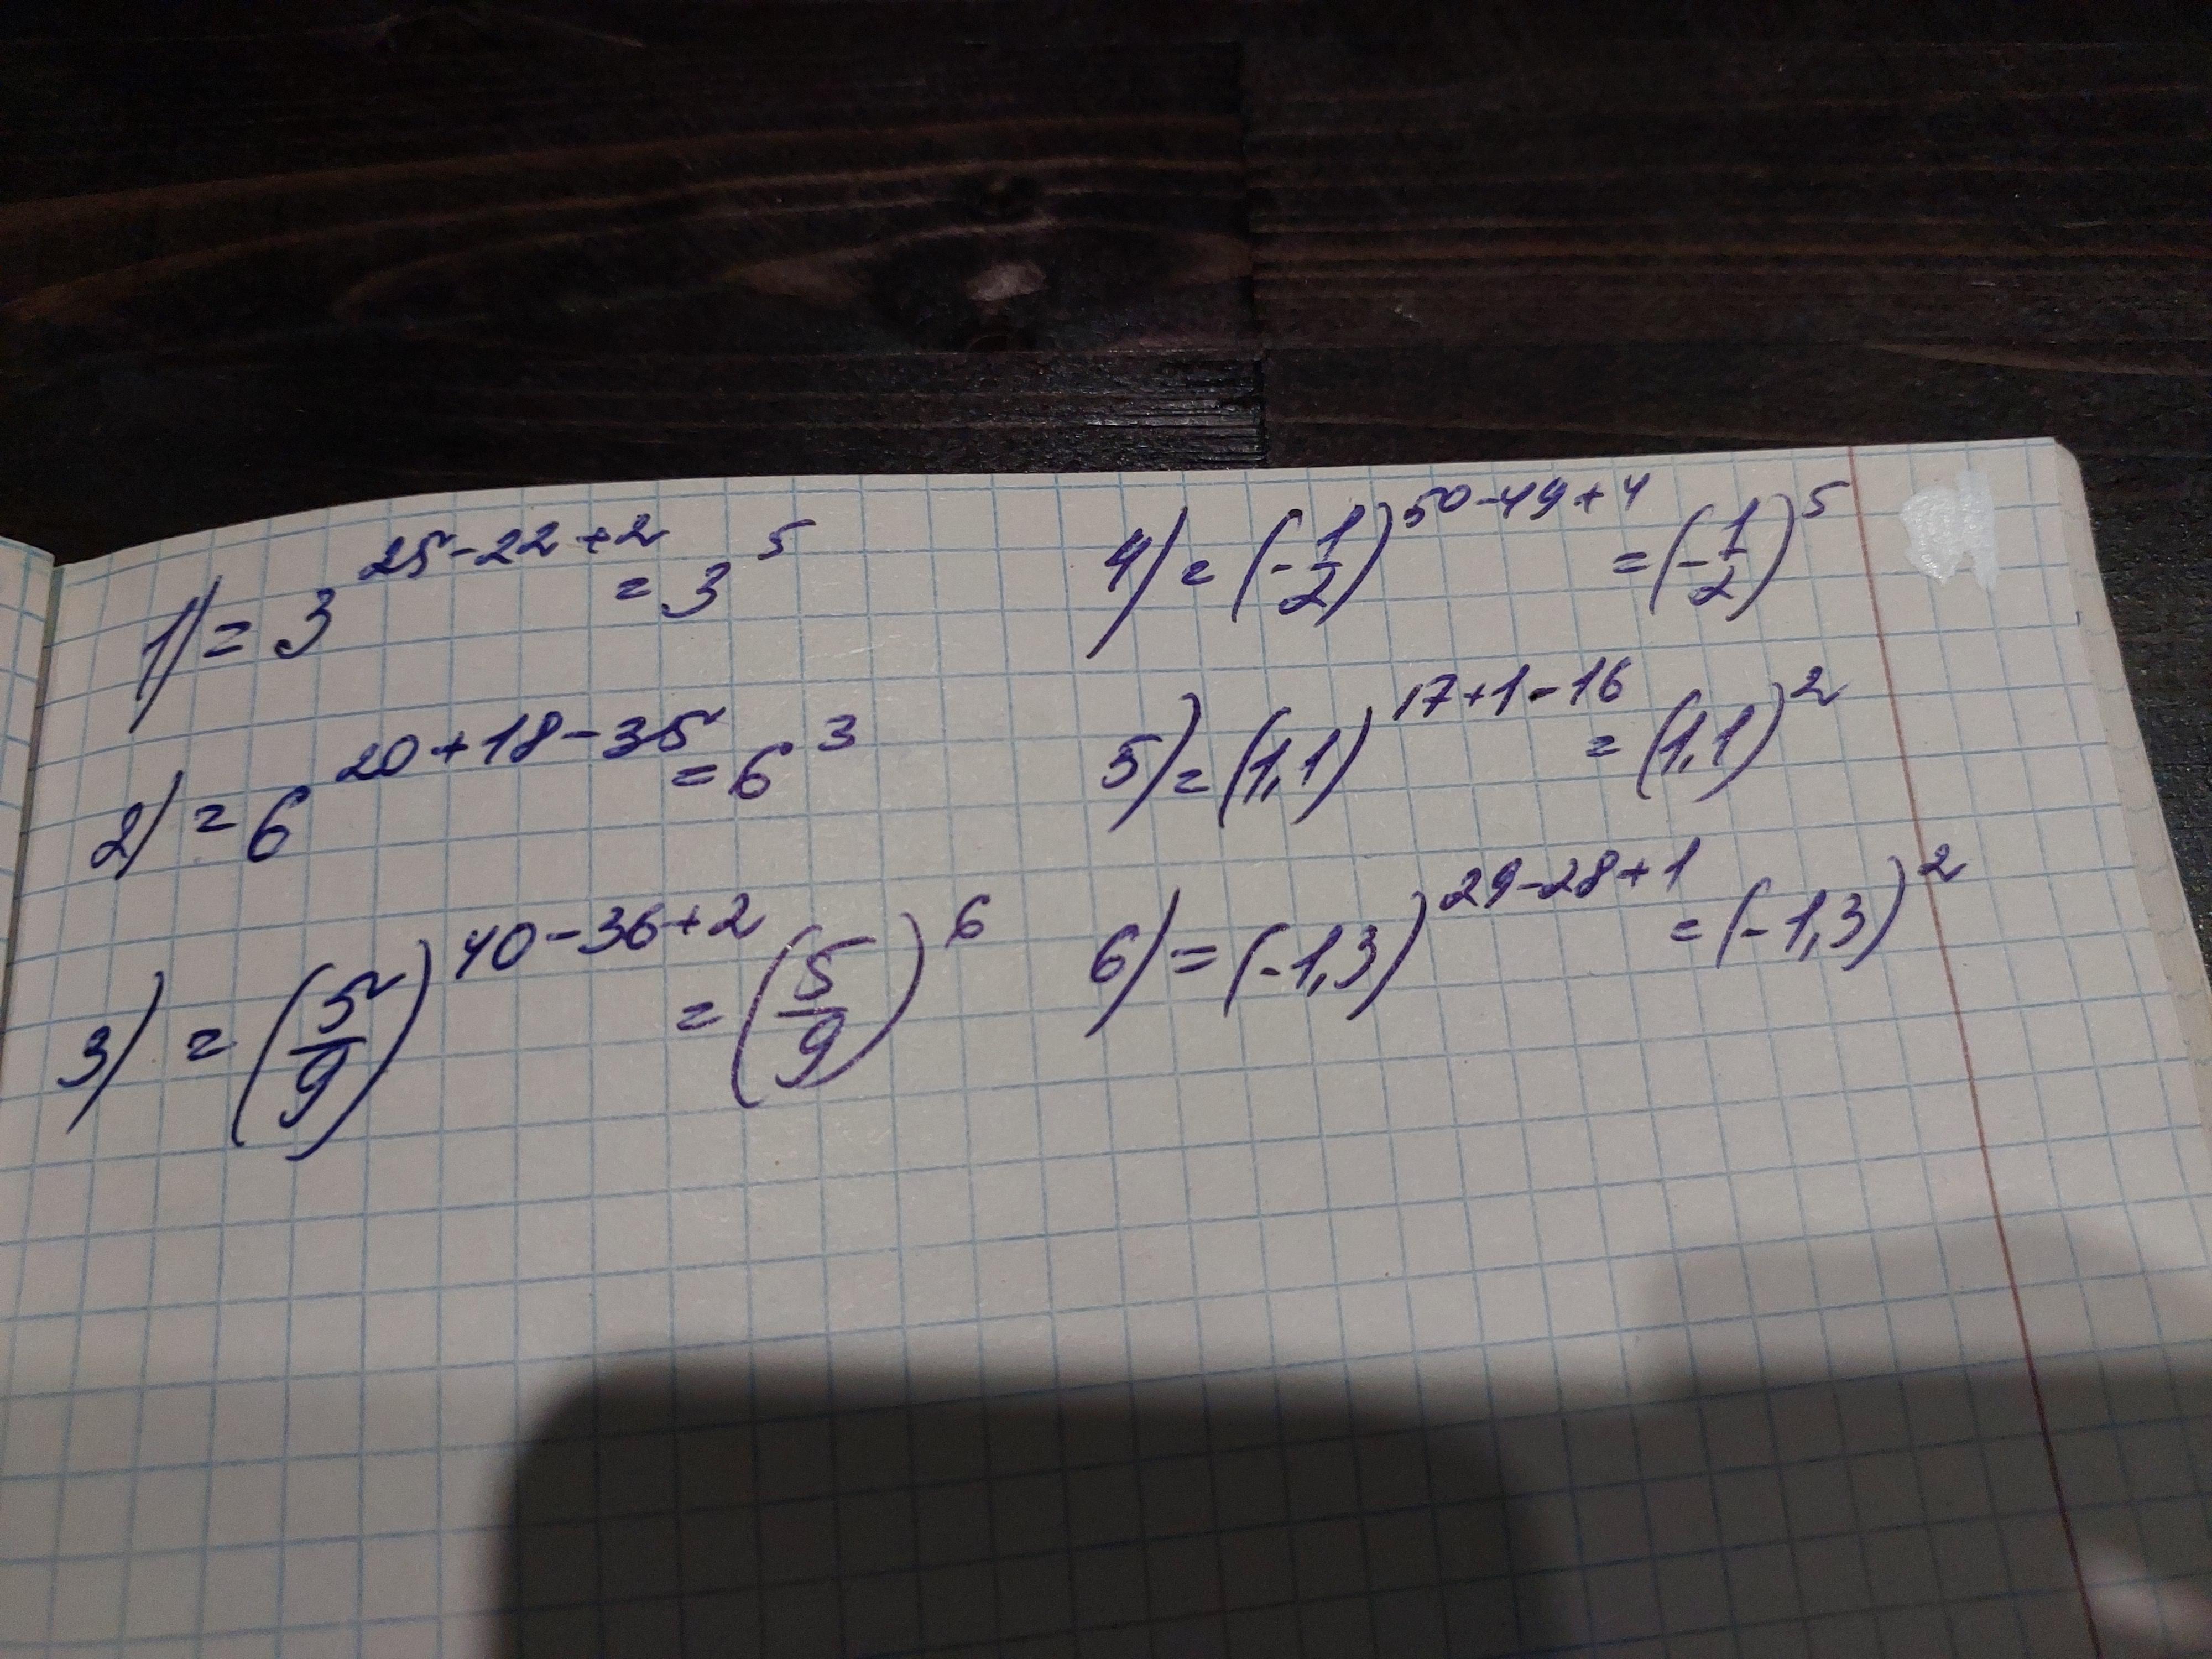 1) = 3^{25-22+2} = 3^5
2) = 6^{20+18-35} = 6^3
3) = (5/9)^{40-36+2} = (5/9)^6
4) = (-1/2)^{50-49+4} = (-1/2)^5
5) = (1,1)^{17+1-16} = (1,1)^2
6) = (-1,3)^{29-28+1} = (-1,3)^2